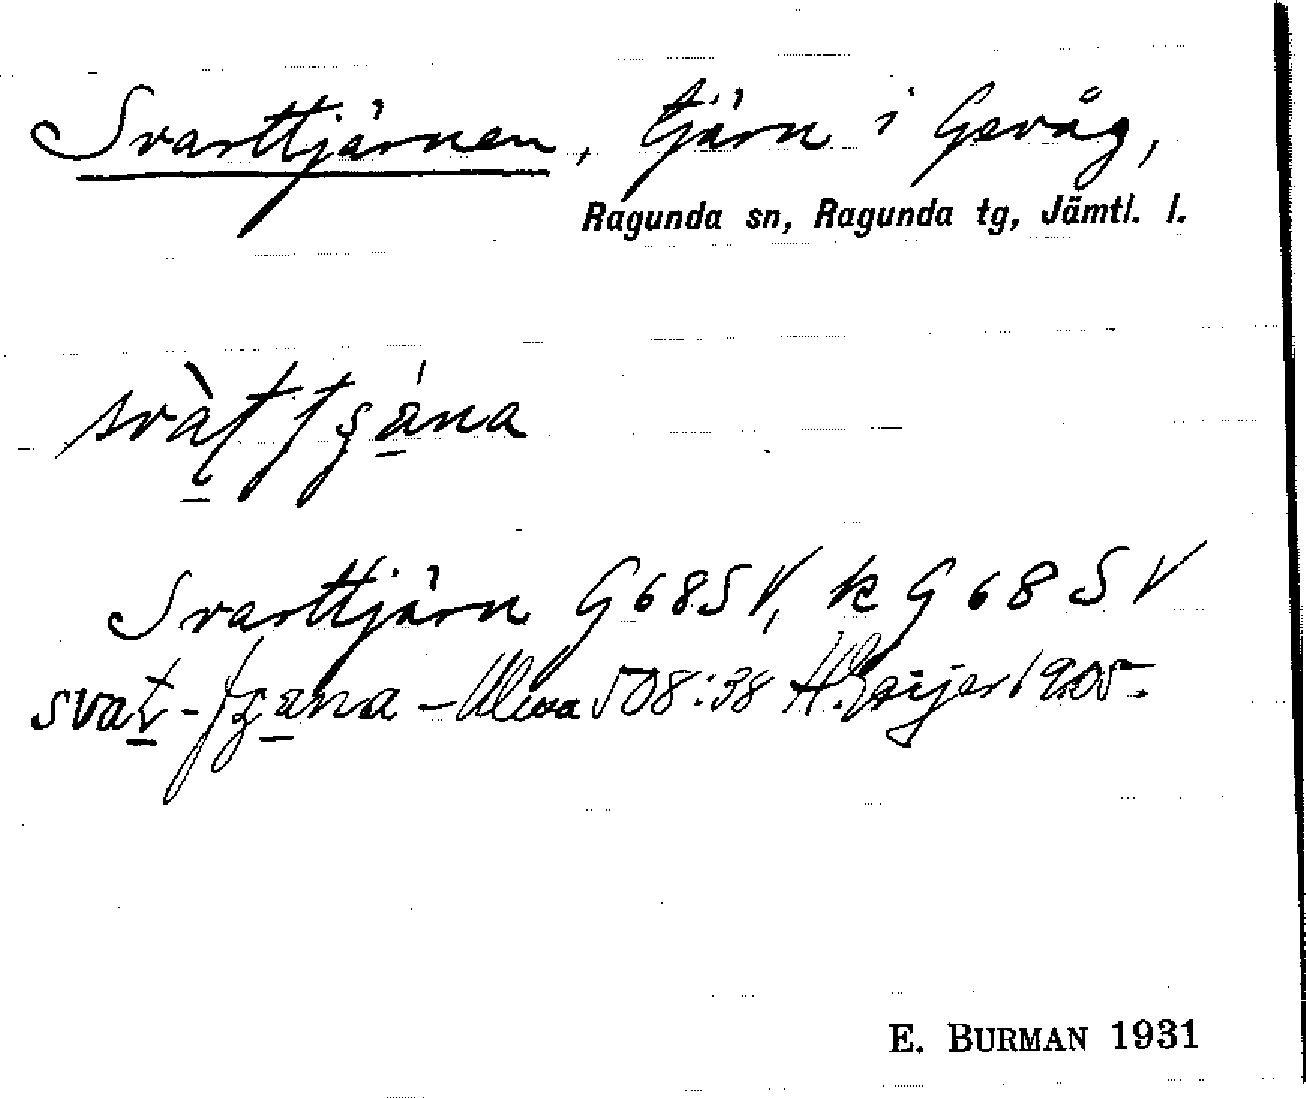 Svarttjärnen, tjärn i Gevåg,
Ragunda sn, Ragunda tg, Jämtl. l.
Svarttjärn G68SV, k G68SV
Ulma 508:38 H. Geijer 1905.
E. BURMAN 1931